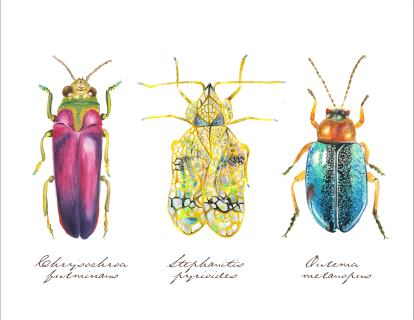 Chrysochroa
fulminans
Stephanitis
pyrioides
Oulema
melanopus